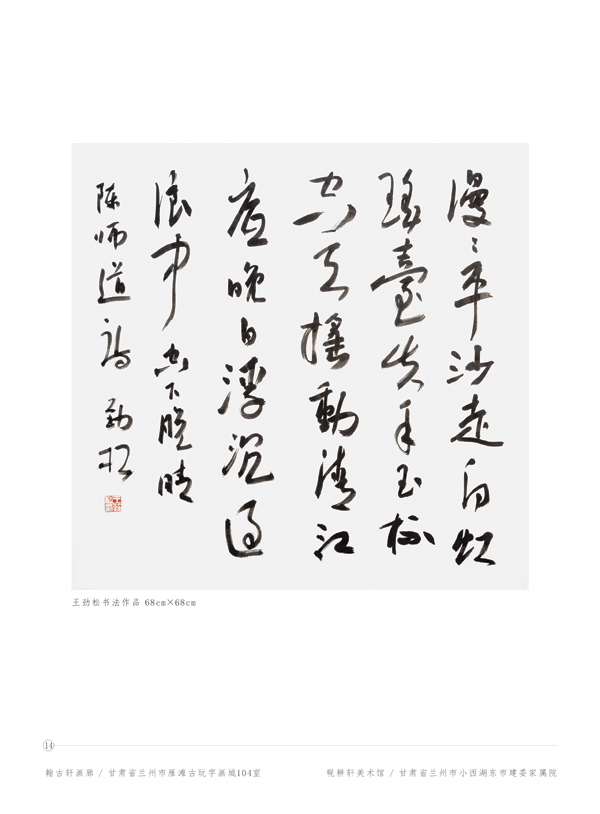 漫〻平沙走白虹
瑶臺失手玉杯
空天摇動清江
底晚日浮沉急
浪中 空下脱晴
陈师道诗 劲松
王劲松书法作品 68cm×68cm
14
翰古轩画廊 / 甘肃省兰州市雁滩古玩字画城104室
砚耕轩美术馆 / 甘肃省兰州市小西湖东市建委家属院